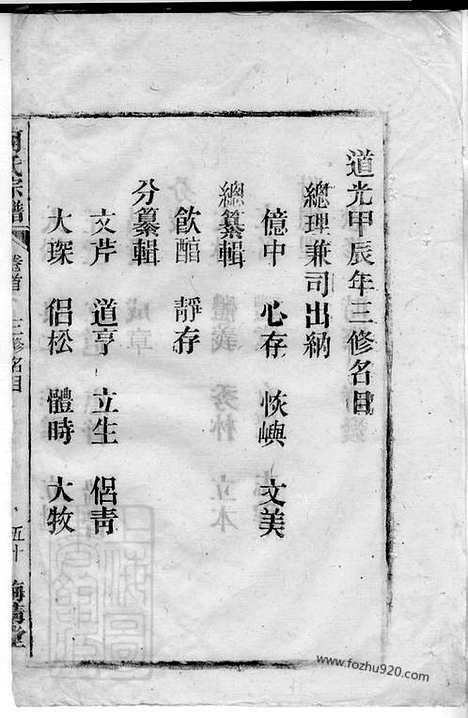 道光甲辰年三修名目
總理兼司出納
億中 心存 恢嶼 文美
總纂輯
飲醕 靜存
分纂輯
文芹 道亨 立生 侶靑
大琛 侶松 體時 大牧
氏宗譜 卷首 三修名目 五十
www.fozhu920.com